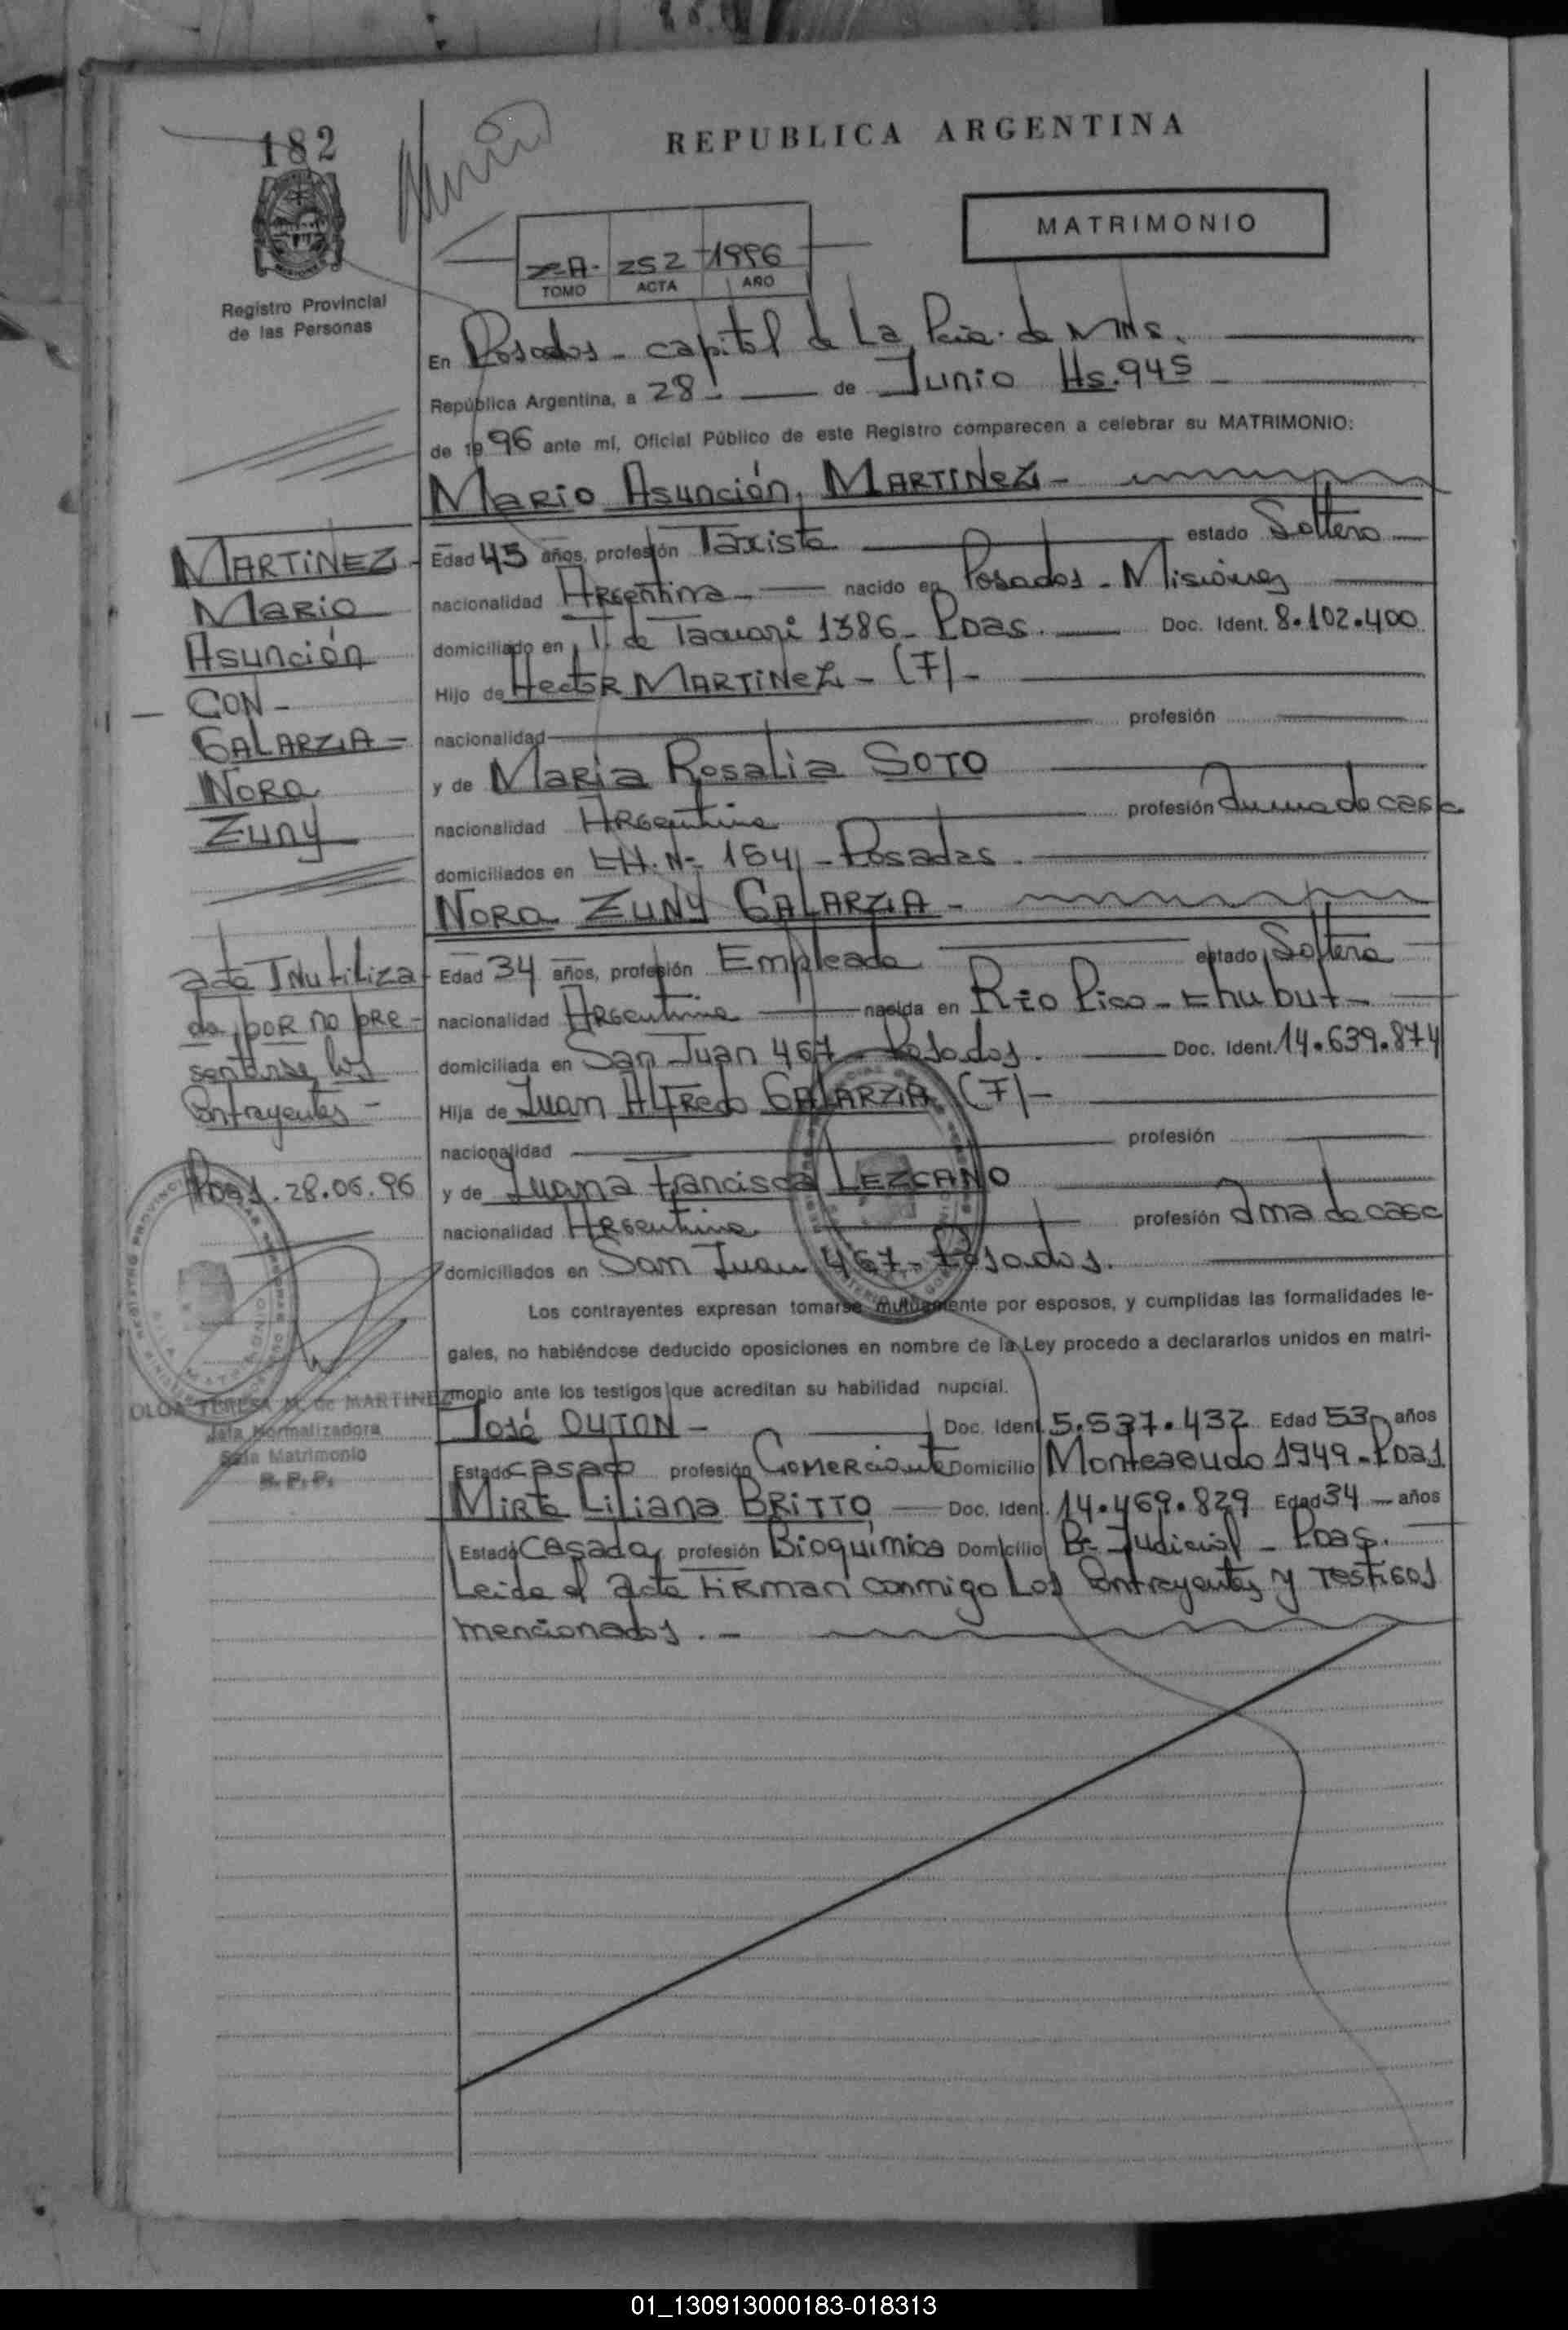 182
REPUBLICA ARGENTINA
MATRIMONIO
252 1996
TOMO ACTA AÑO
Registro Provincial
de las Personas
En Posadas - capital de La Pcia. de Mns.
República Argentina, a 28 de Junio Hs. 945
de 1996 ante mí, Oficial Público de este Registro comparecen a celebrar su MATRIMONIO:
Mario Asunción, MARTINEZ -
Edad 45 años, profesión Taxista estado Soltero
nacionalidad Argentina nacido en Posadas - Misiones
domiciliado en T. de Tacuari 1386 - Pdas. Doc. Ident. 8.102.400
Hijo de Hector MARTINEZ - (F) -
nacionalidad profesión
y de Maria Rosalia SOTO
nacionalidad Argentina profesión Ama de casa
domiciliados en CH. Nº 154 - Posadas.
NORA ZUNY GALARZA -
Edad 34 años, profesión Empleada estado Soltera
nacionalidad Argentina nacida en Rio Pico - Chubut -
domiciliada en San Juan 467 - Posadas. Doc. Ident. 14.639.874
Hija de Juan Alfredo GALARZA (F) -
nacionalidad profesión
y de Juana Francisca LEZCANO
nacionalidad Argentina profesión Ama de casa
domiciliados en San Juan 467 - Posadas.
Los contrayentes expresan tomarse mutuamente por esposos, y cumplidas las formalidades le-
gales, no habiéndose deducido oposiciones en nombre de la Ley procedo a declararlos unidos en matri-
monio ante los testigos que acreditan su habilidad nupcial.
José OUTON - Doc. Ident. 5.537.432 Edad 53 años
Estado casado profesión Comerciante Domicilio Monteagudo 1949 - Pdas
Mirta Liliana BRITTO Doc. Ident. 14.469.829 Edad 34 años
Estado Casada profesión Bioquímica Domicilio Bº Judicial - Pdas.
Leida el acta firman conmigo Los Contrayentes y Testigos
mencionados . -
MARTINEZ -
Mario
Asunción
CON -
GALARZA -
Nora
Zuny
acta Inutiliza-
da por no pre-
sentarse los
Contrayentes -
Pdas. 28.06.96
OLGA TERESA M. de MARTINEZ
Jefa Normalizadora
Sala Matrimonio
R. P. P.
01_130913000183-018313